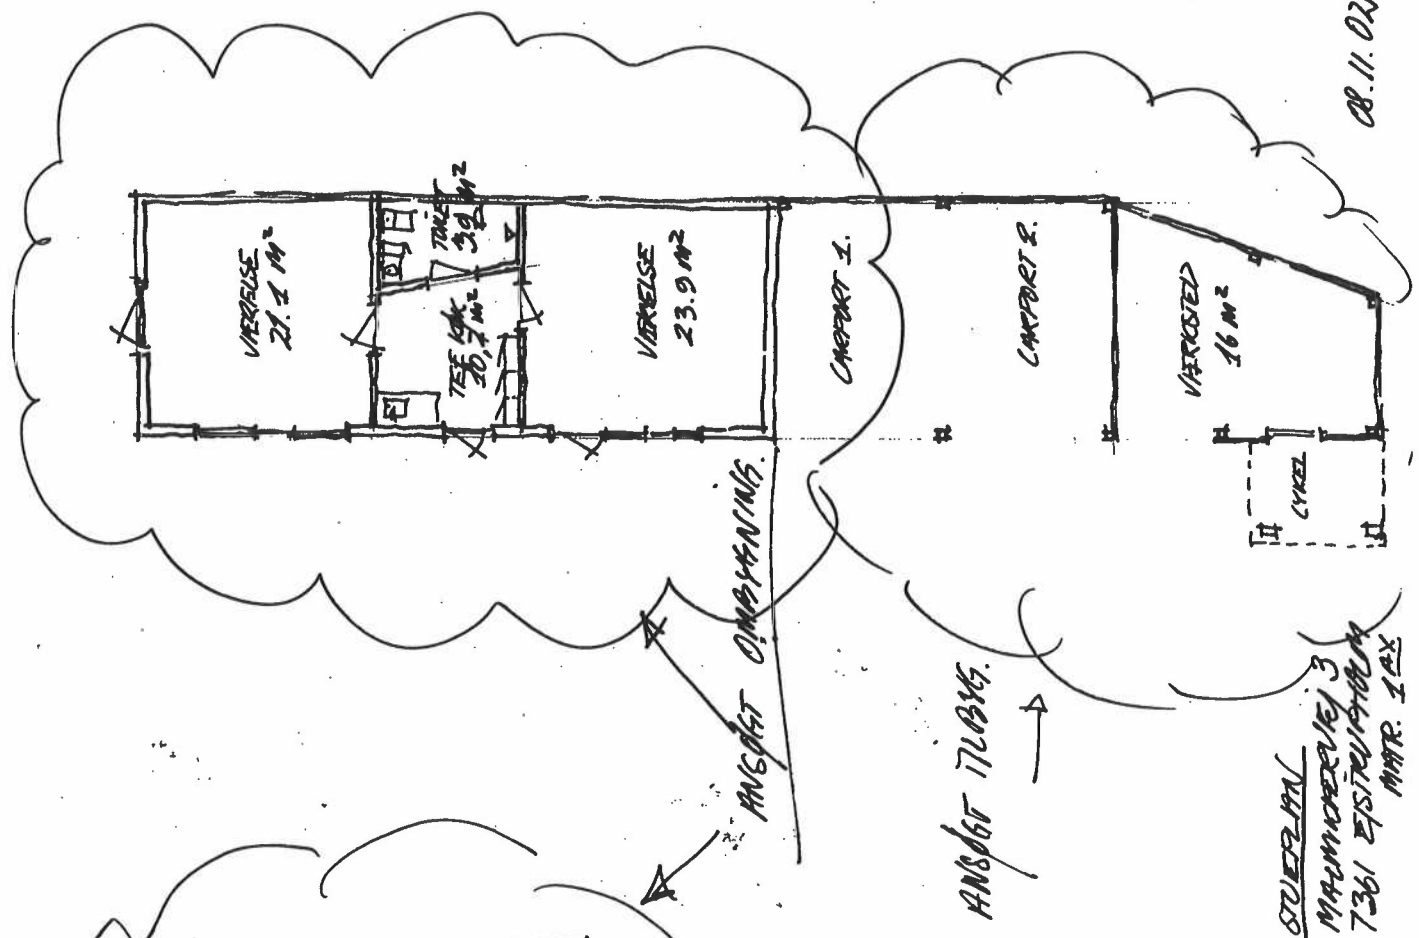 08.11.02
VÆRELSE
21.1 M²
TOILET
3.9 M²
TEE KØK
10,7 M²
VÆRELSE
23.9 M²
CARPORT 1.
CARPORT 2.
VÆRKSTED
16 M²
CYKEL
ANSØGT OMBYGNING.
ANSØGT TILBYG.
STUEPLAN
3
7361 EJSTRUPHOLM
MATR. 1AX